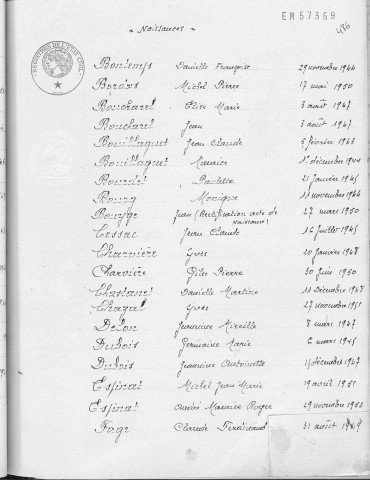 EM57559
486
- Naissances -
Bontemps Danielle Françoise 29 novembre 1944
Borós Michel Pierre 17 mai 1950
Boucharel Elise Marie 3 août 1947
Boucharel Jean 3 août 1947
Bouillaguet Jean Claude 5 février 1943
Bouillaguet Maurice 1er décembre 1944
Bourdet Paulette 21 janvier 1945
Bourg Monique 11 novembre 1944
Bouyge Jean (Rectification acte de 27 mai 1950
naissance)
Cessac Jean Claude 16 juillet 1945
Charvière Yves 20 janvier 1948
Charvière Giles Pierre 30 juin 1950
Chastanet Danielle Martine 11 décembre 1948
Chazal Yves 27 novembre 1951
Delon Jeannine Mireille 8 mars 1947
Dubois Germaine Marie 6 mars 1945
Dubois Jeannine Antoinette 15 décembre 1947
Espinat Michel Jean Marie 19 avril 1951
Espinat André Maurice Roger 29 novembre 1952
Fage Claude Ferdinand 31 août 1949